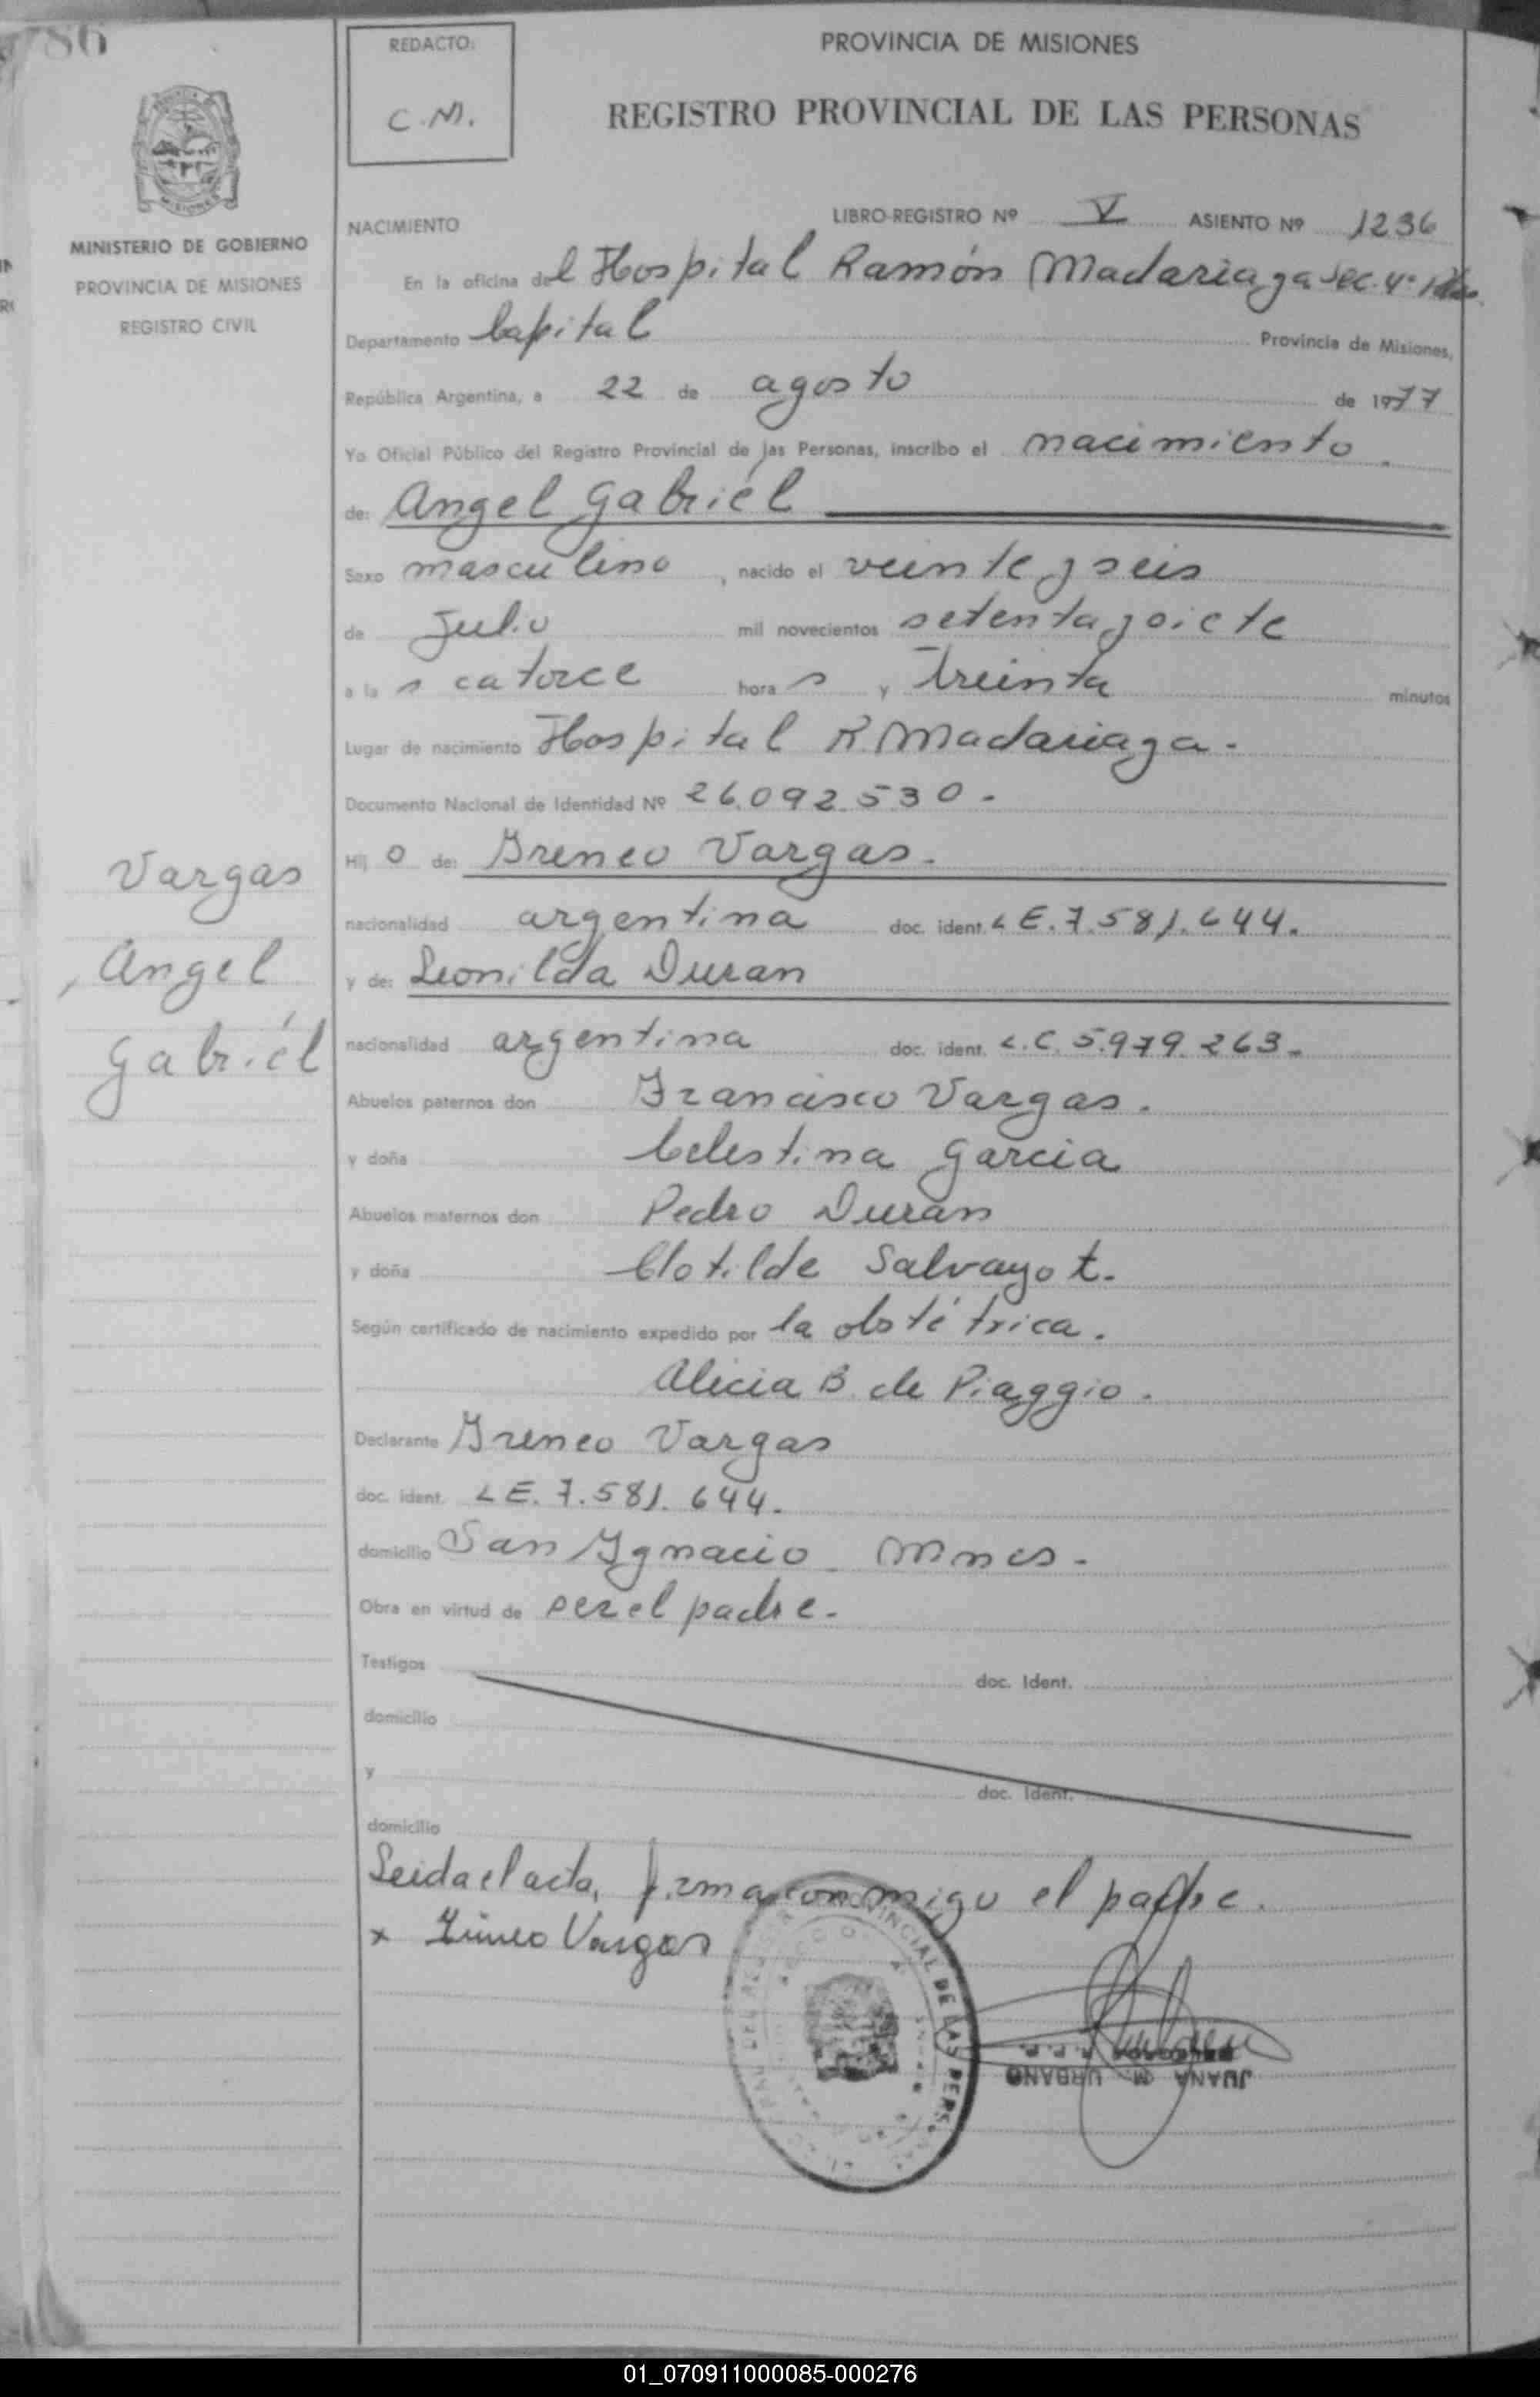 786
MINISTERIO DE GOBIERNO
PROVINCIA DE MISIONES
REGISTRO CIVIL
Vargas
Angel
Gabriél
REDACTO:
C.M.
PROVINCIA DE MISIONES
REGISTRO PROVINCIAL DE LAS PERSONAS
NACIMIENTO LIBRO-REGISTRO Nº V ASIENTO Nº 1236
En la oficina del Hospital Ramón Madariaga Sec. 4ª
Departamento Capital Provincia de Misiones,
República Argentina, a 22 de agosto de 1977
Yo Oficial Público del Registro Provincial de las Personas, inscribo el nacimiento
de: Angel Gabriél
Sexo masculino, nacido el veinte y seis
de Julio mil novecientos setenta y siete
a las catorce horas y treinta minutos
Lugar de nacimiento Hospital R. Madariaga.
Documento Nacional de Identidad Nº 26.092.530.
Hijo de: Ireneo Vargas.
nacionalidad argentina doc. ident. L E. 7.581.644.
y de: Leonilda Duran
nacionalidad argentina doc. ident. L.C. 5.979.263.
Abuelos paternos don Francisco Vargas.
y doña Celestina Garcia
Abuelos maternos don Pedro Durán
y doña Clotilde Salvayot.
Según certificado de nacimiento expedido por la obstétrica.
Alicia B. de Piaggio.
Declarante Ireneo Vargas
doc. ident. L E. 7.581.644.
domicilio San Ygnacio Mnes.
Obra en virtud de ser el padre.
Testigos doc. Ident.
domicilio
y doc. Ident.
domicilio
Leida el acta, firma conmigo el padre.
x Irineo Vargas
PROVINCIAL DE LAS PERSONAS
JUANA M. URBANO
01_070911000085-000276